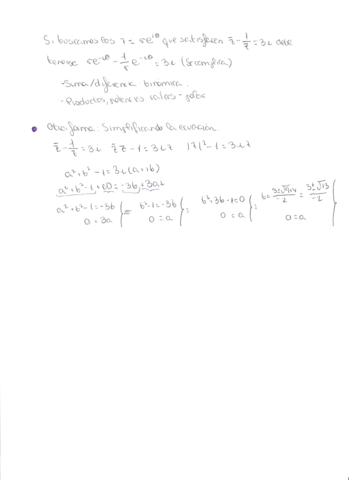 Si buscamos los z = re^{iθ} que satisfacen z̄ - 1/z = 3i debe
tenerse re^{-iθ} - 1/r e^{-iθ} = 3i (Se complica)
- Suma/diferencia binómica.
- Productos, potencias raíces - polar
Otra forma: Simplificando la ecuación.
z̄ - 1/z = 3i z̄z - 1 = 3iz |z|² - 1 = 3iz
a² + b² - 1 = 3i(a + ib)
a² + b² - 1 + i0 = -3b + 3ai
a² + b² - 1 = -3b } = b² - 1 = -3b } : b² + 3b - 1 = 0 } : b = = 3±√13/-2 }
0 = 3a 0 = a 0 = a 0 = a